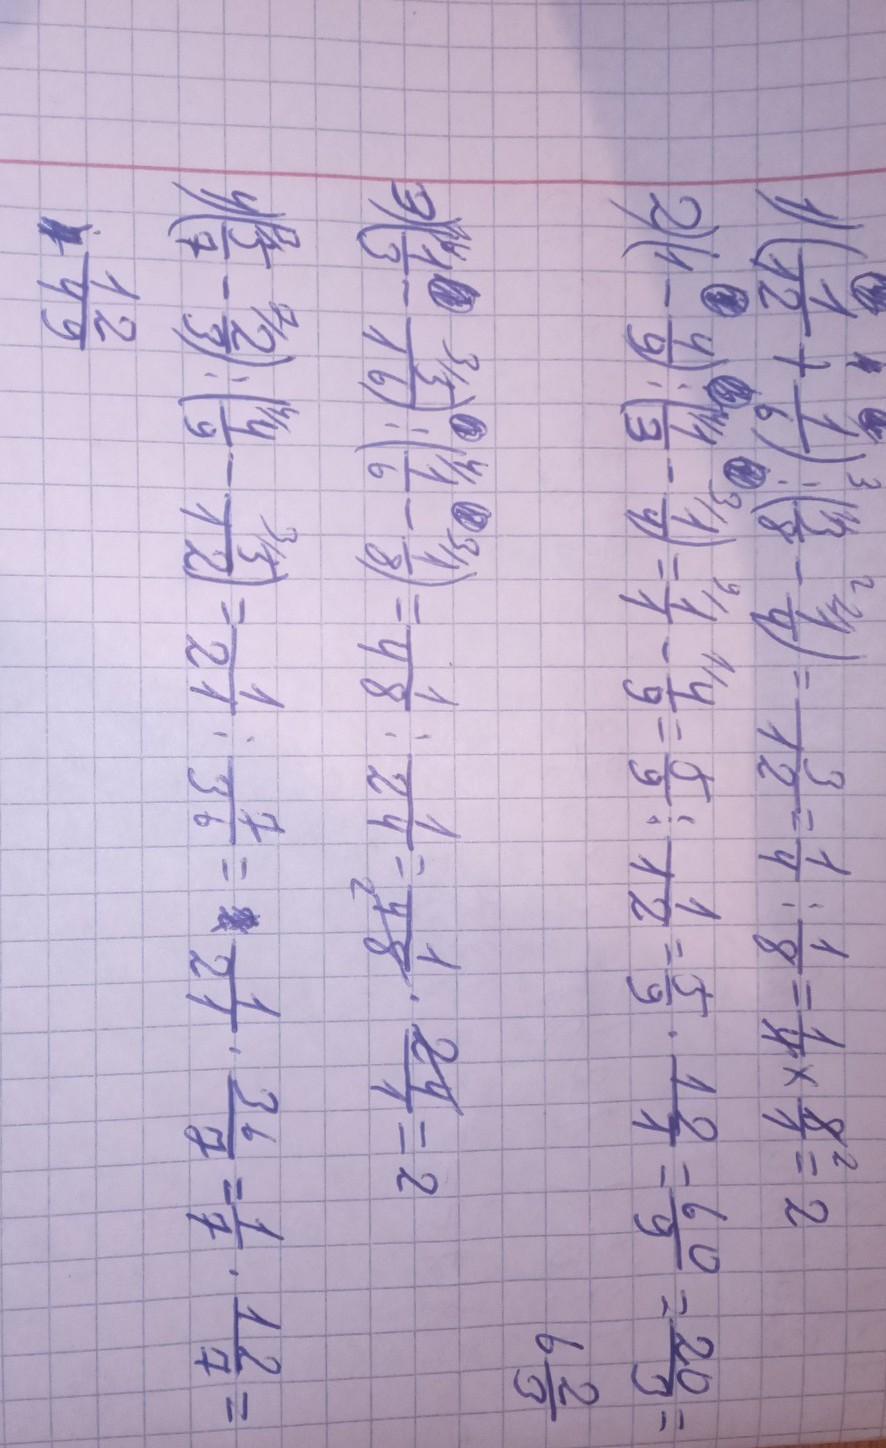 1) (1/12 + 1/6) : (3/8 - 1/4) = 3/12 = 1/4 : 1/8 = 1/4 × 8/1 = 2
2) (1 - 4/9) : (1/3 - 1/4) = 1/1 - 4/9 = 5/9 : 1/12 = 5/9 · 12/1 = 60/9 = 20/3 =
6 2/3
3) (1/3 - 5/16) : (1/6 - 1/8) = 1/48 : 1/24 = 1/48 · 24/1 = 2
4) (5/7 - 2/3) : (4/9 - 3/12) = 1/21 : 7/36 = 1/21 · 36/7 = 1/7 · 12/7 =
= 12/49